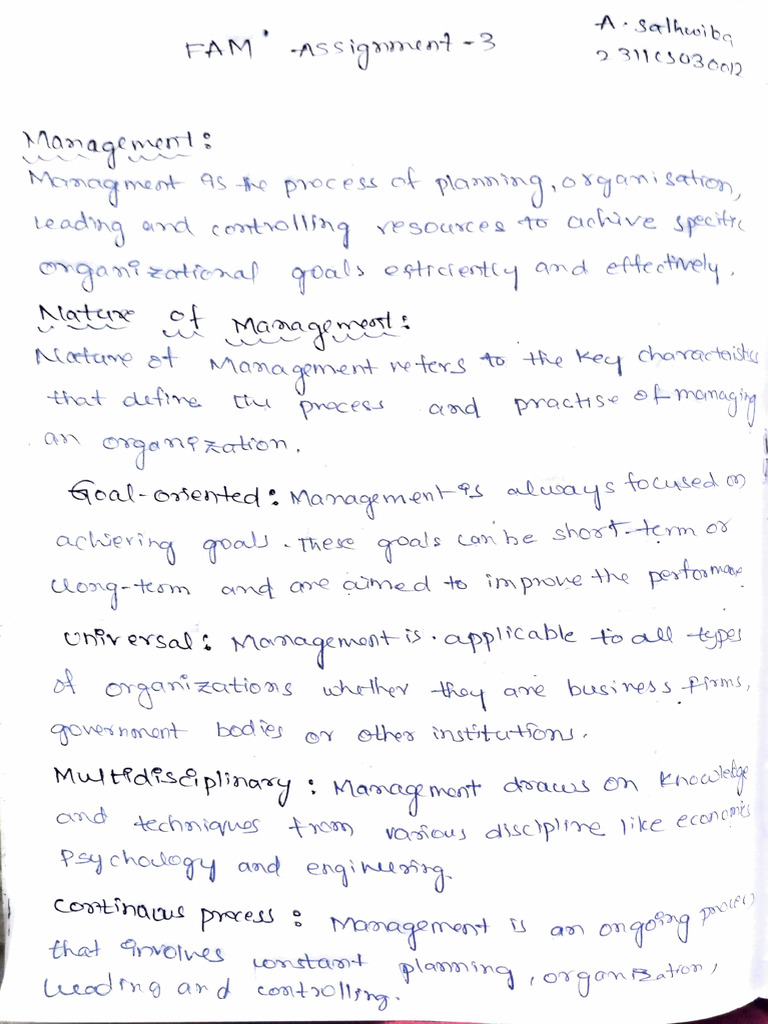 FAM Assignment-3
A. Sathwika
Management:
Managment is the process of planning, organisation,
leading and controlling resources to achive specific
organizational goals efficiently and effectively.
Nature of Management:
Nature of Management refers to the key characteristics
that define the process and practise of managing
an organization.
Goal-oriented: Management is always focused on
achiering goals. These goals can be short-term or
long-term and are aimed to improve the performance
Universal: Management is. applicable to all types
of organizations whether they are business firms,
government bodies or other institutions.
Multidisciplinary: Management draws on knowledge
and techniques from various discipline like economics
Psychology and engineering.
Continous process: Management is an ongoing process
that involves constant planning, organization,
leading and controlling.